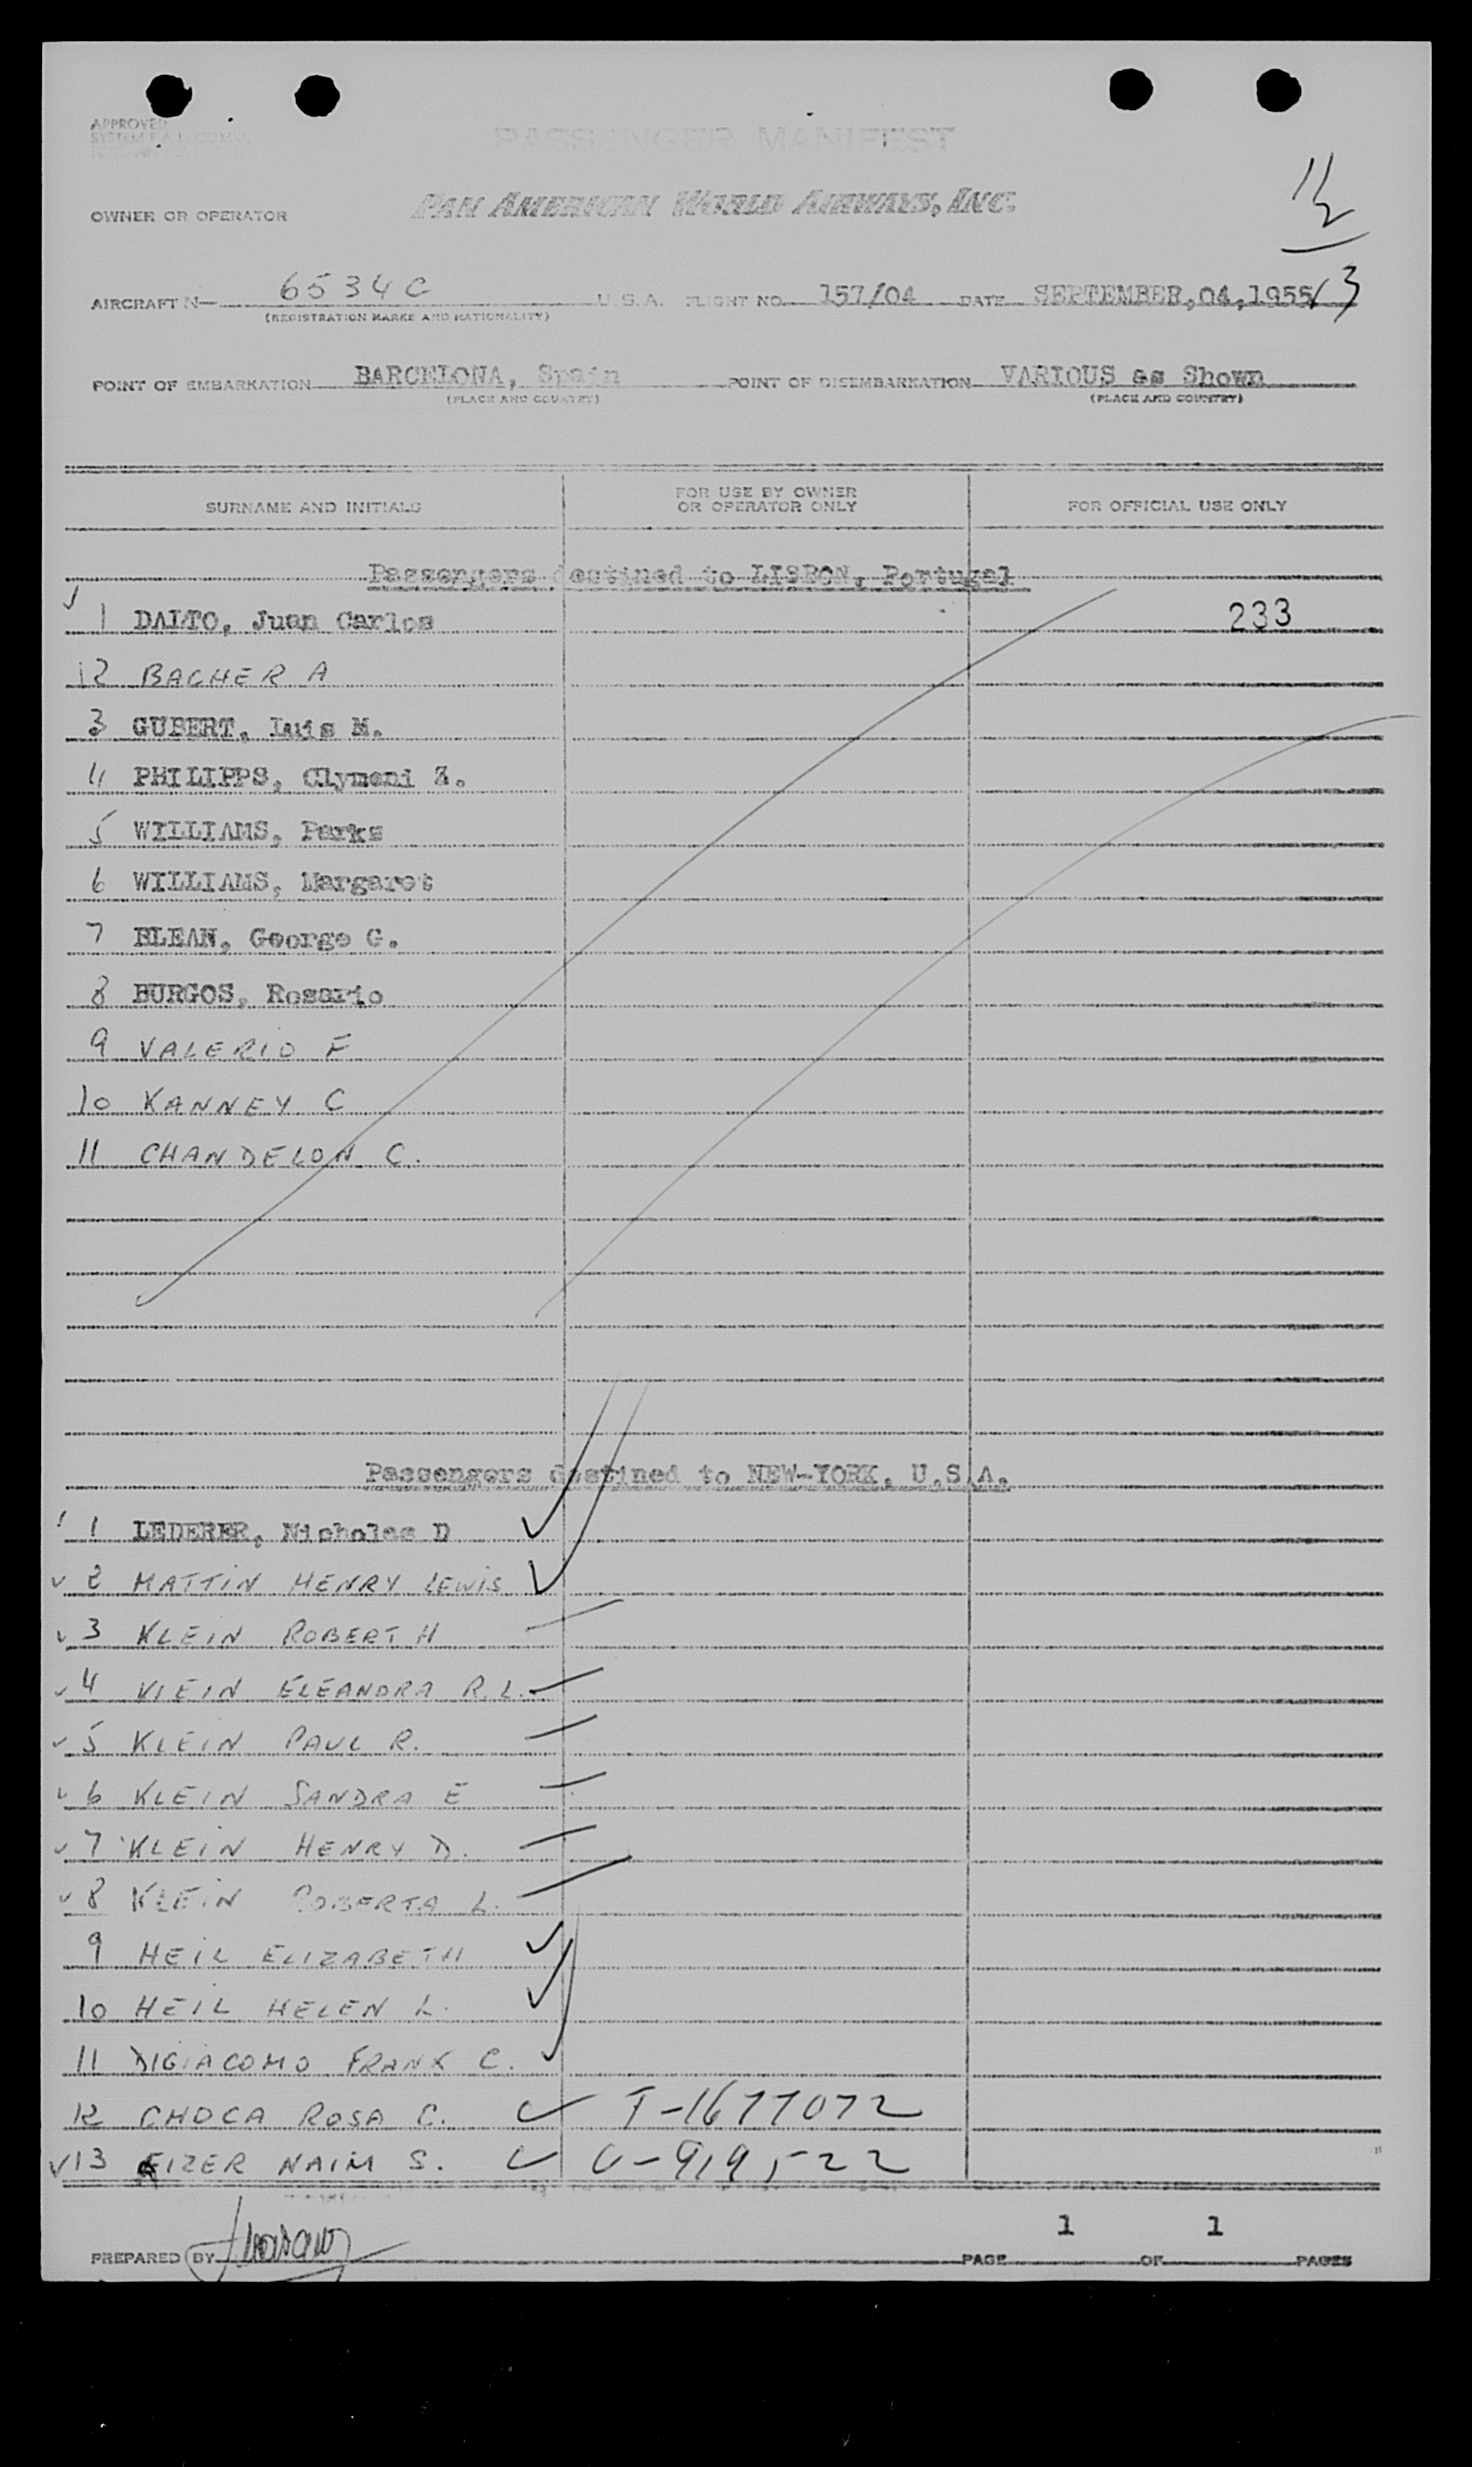 APPROVED
PASSENGER MANIFEST
OWNER OR OPERATOR PAN AMERICAN WORLD AIRWAYS, INC.
AIRCRAFT N— 6534C U. S. A. FLIGHT NO. 157/04 DATE SEPTEMBER,04,1955
(REGISTRATION MARKS AND NATIONALITY)
13
POINT OF EMBARKATION BARCELONA, Spain POINT OF DISEMBARKATION VARIOUS as Shown
(PLACE AND COUNTRY) (PLACE AND COUNTRY)
SURNAME AND INITIALS FOR USE BY OWNER OR OPERATOR ONLY FOR OFFICIAL USE ONLY
Passengers destined to LISBON, Portugal
1 DALTO, Juan Carlos 233
2 BACHER A
3 GUBERT, Luis M.
4 PHILIPPS, Clymeni Z.
5 WILLIAMS, Parks
6 WILLIAMS, Margaret
7 BLEAN, George G.
8 BURGOS, Rosario
9 VALERIO F
10 KANNEY C
11 CHANDELON C.
Passengers destined to NEW-YORK, U.S.A.
1 LEDERER, Nicholas D
2 MATTIN HENRY LEWIS
3 KLEIN ROBERT H
4 KLEIN ELEANDRA R.L.
5 KLEIN PAUL R.
6 KLEIN SANDRA E
7 KLEIN HENRY D.
8 KLEIN ROBERTA L.
9 HEIL ELIZABETH
10 HEIL HELEN L.
11 DIGIACOMO FRANK C.
12 CHOCA ROSA C. T-1677072
13 NAIM S.
PREPARED BY PAGE 1 OF 1 PAGES